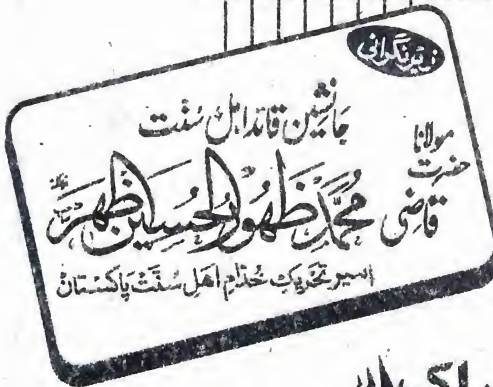 زیر نگرانی
جانشین قائد اہل سُنّت
حضرت مولانا
قاضی محمد ظہور الحسین اظہر
امیر تحریک خدام اھل سُنّت پاکستان